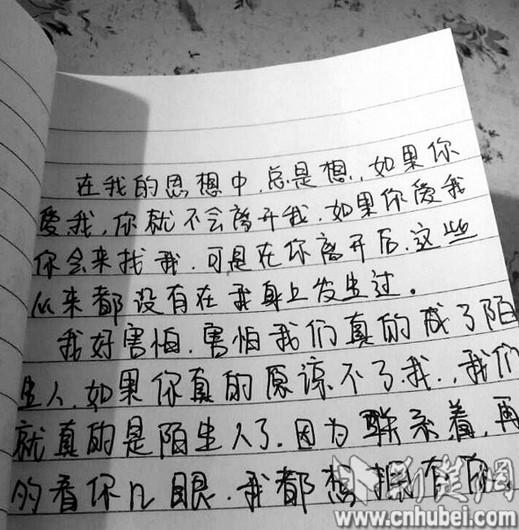 在我的思想中.总是想,如果你
爱我,你就不会离开我.如果你爱我
你会来找我.可是在你离开后.这些
从来都没有在我身上发生过。
我好害怕.害怕我们真的成了陌
生人.如果你真的原谅不了我.,我们
就真的是陌生人了.因为联系着,再
的看你几眼.我都想拥有你.
荆楚网
www.cnhubei.com